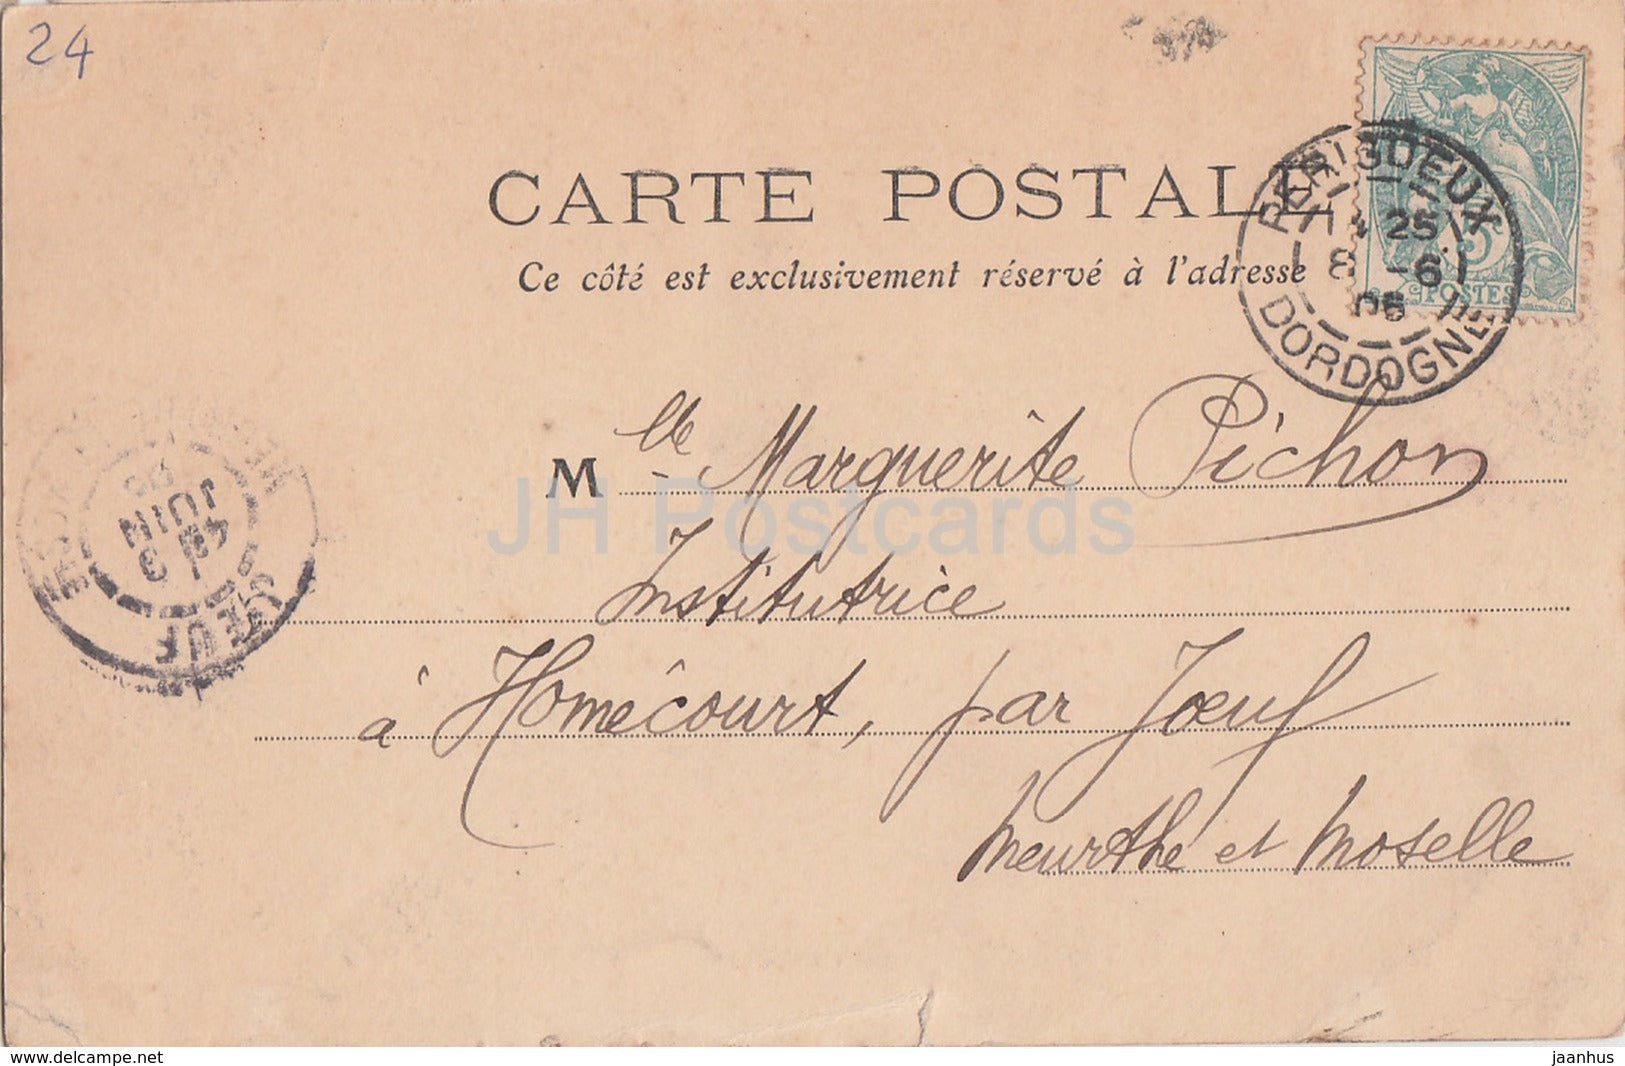 24
CARTE POSTALE
Ce côté est exclusivement réservé à l'adresse
PERIGUEUX
25
8 -6
06
DORDOGNE
5
POSTES
Mlle Marguerite Pichon
Institutrice
à Homécourt, par Jœuf
Meurthe et Moselle
JUIN
JŒUF
JH Postcards
www.delcampe.net
jaanhus